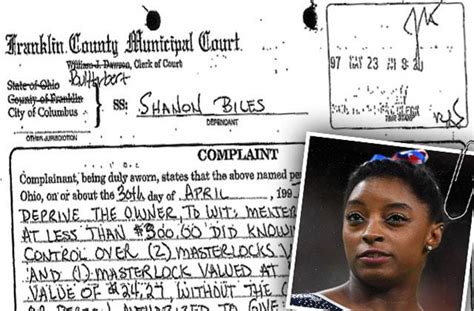 Franklin County Municipal Court
William J. Dawson, Clerk of Court
State of Ohio
County of Franklin
City of Columbus
SS: SHANON BILES
DEFENDANT
OTHER JURISDICTION
97 MAY 23
COMPLAINT
Complainant, being duly sworn, states that the above named per
Ohio, on or about the 30th day of APRIL, 199
DEPRIVE THE OWNER, TO WIT:
AT LESS THAN $300.00 DID KNOWI
CONTROL OVER (2) MASTERLOCKS V
AND (1) MASTERLOCK VALUED AT
VALUE OF $24.27, WITHOUT THE C